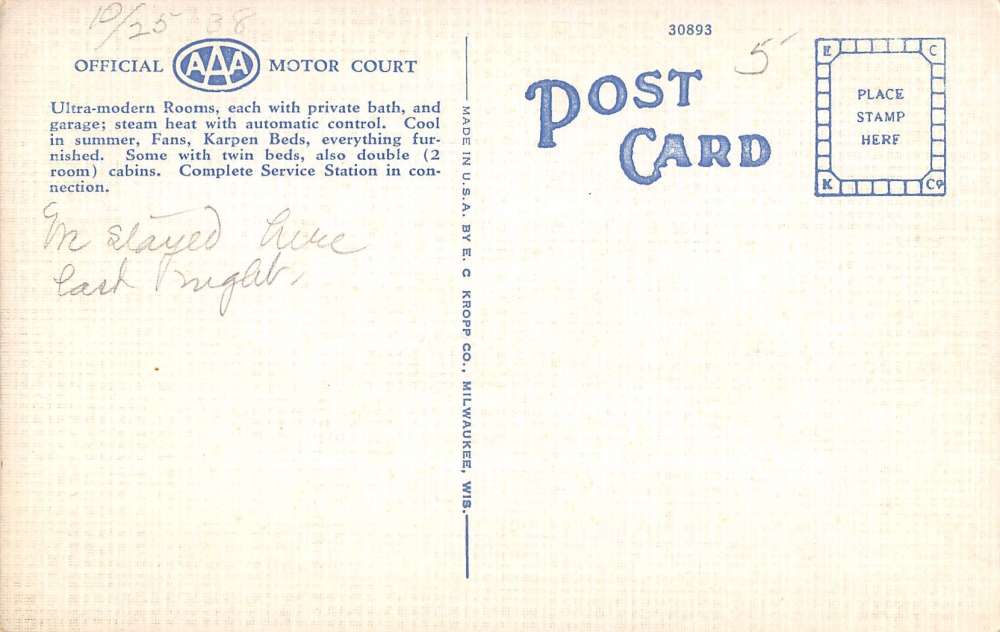 10/25 38
OFFICIAL AAA MOTOR COURT
Ultra-modern Rooms, each with private bath, and
garage; steam heat with automatic control. Cool
in summer, Fans, Karpen Beds, everything fur-
nished. Some with twin beds, also double (2
room) cabins. Complete Service Station in con-
nection.
stayed here
last night.
MADE IN U.S.A. BY E. C. KROPP CO., MILWAUKEE, WIS.
30893
5
POST
CARD
E C
PLACE
STAMP
HERE
K Co